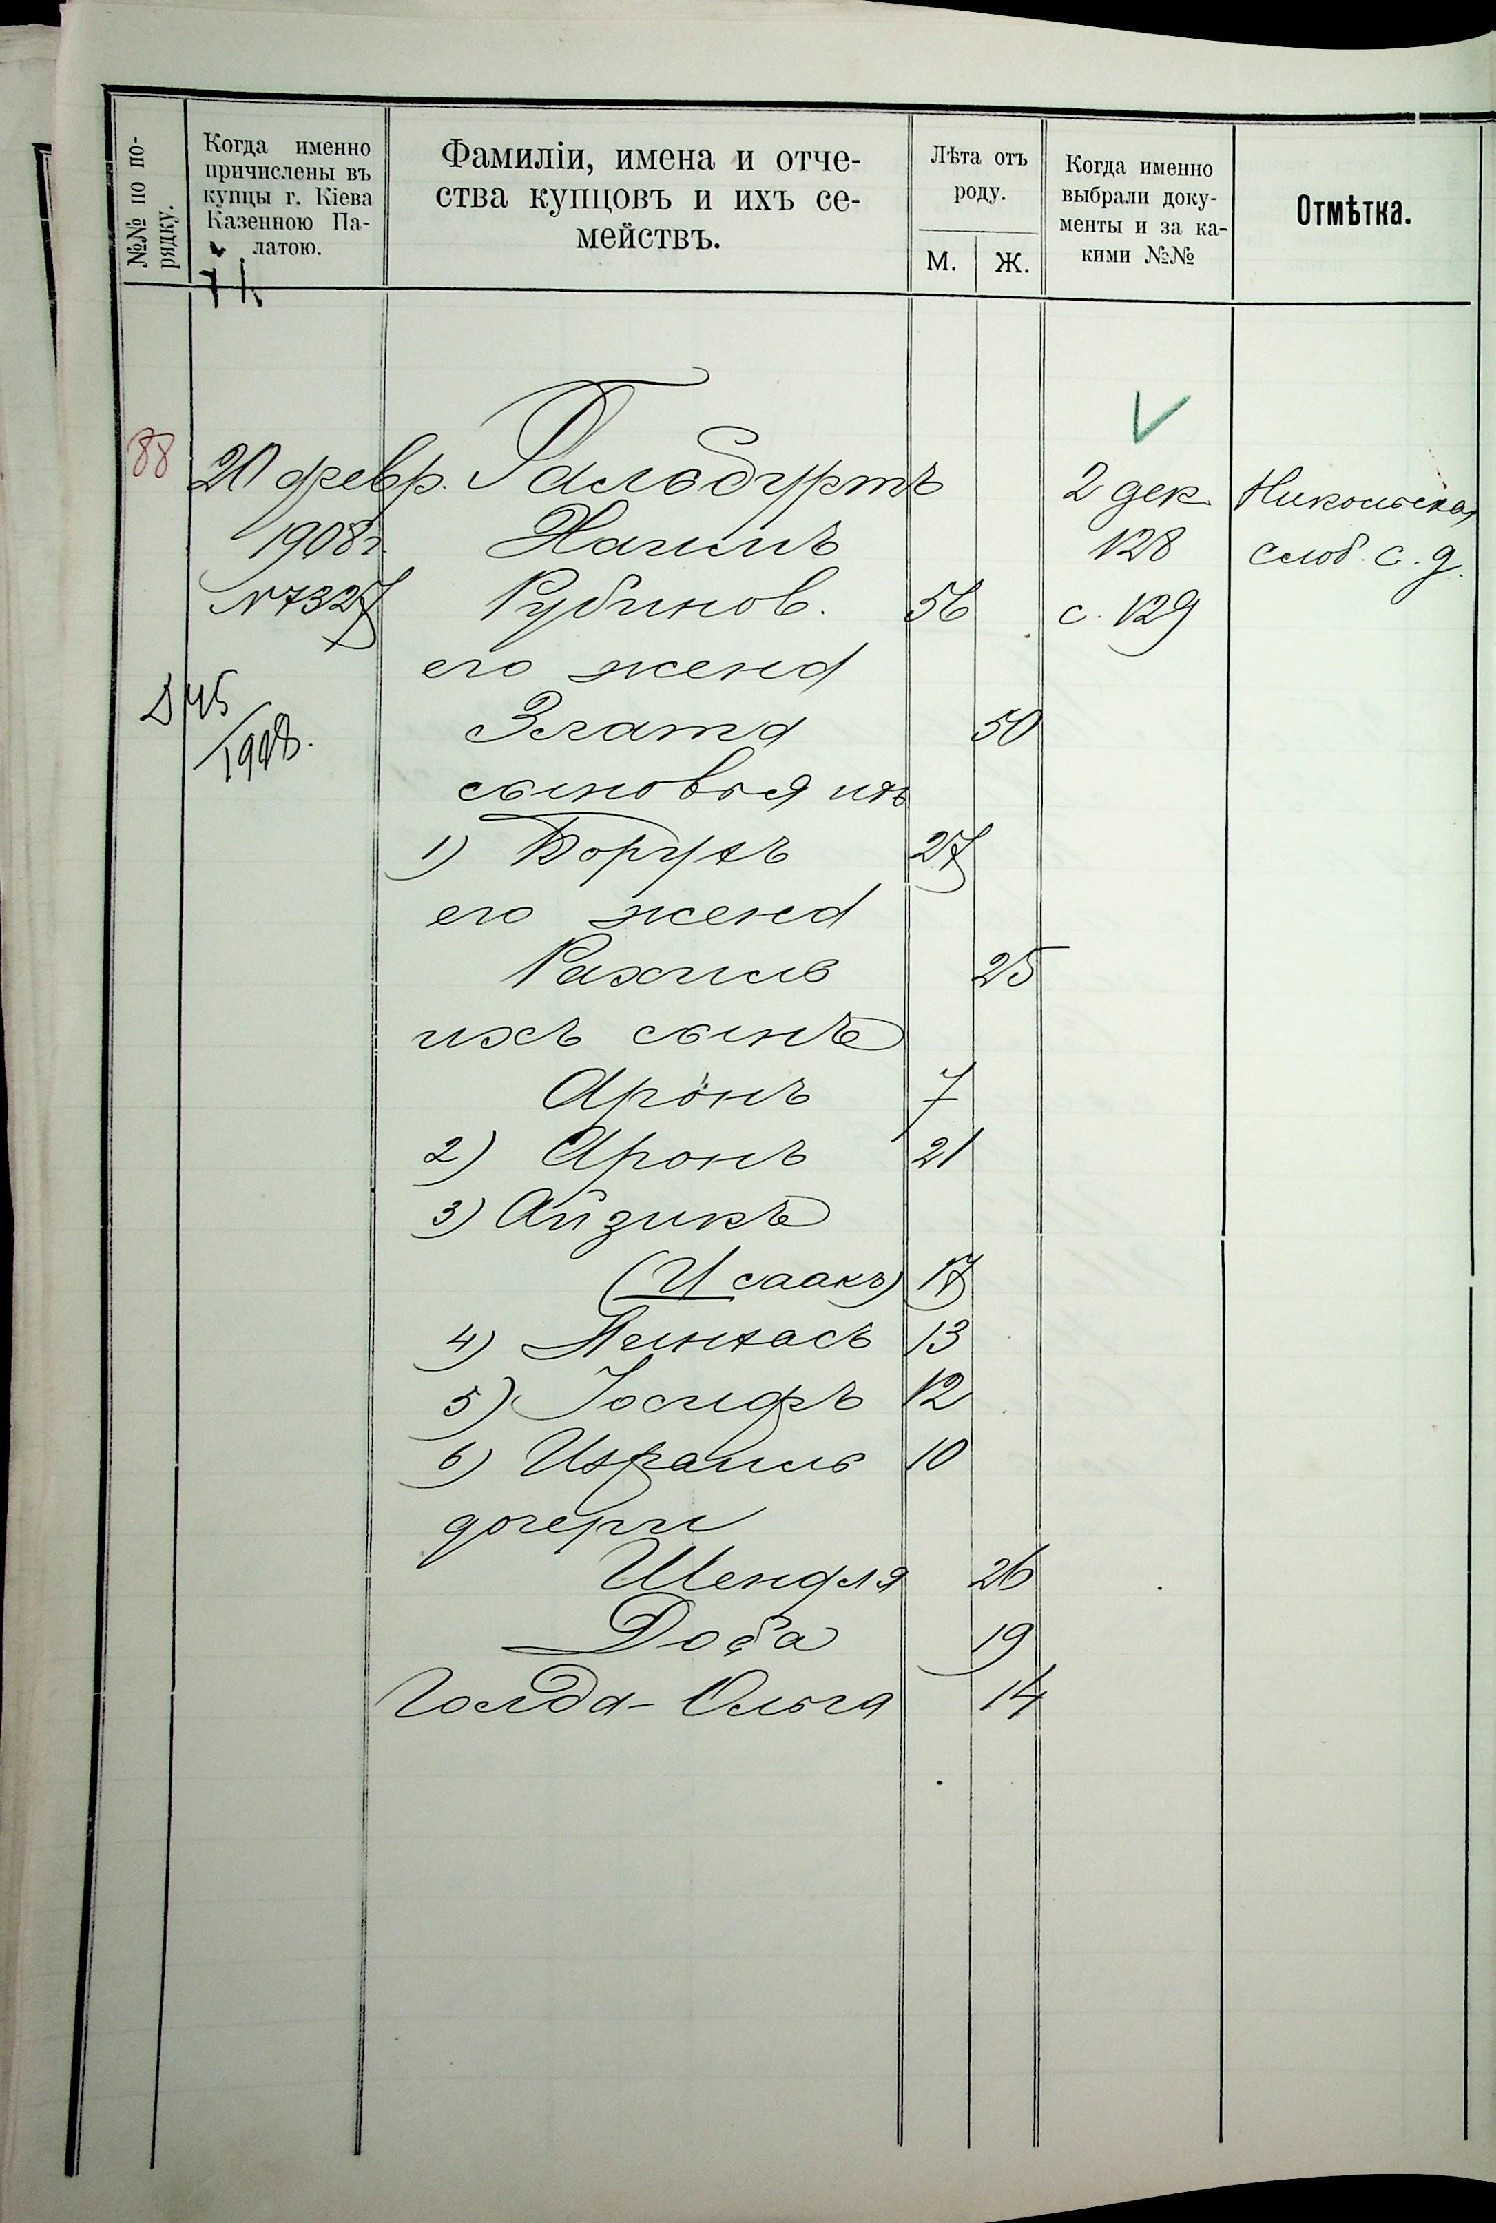 №№ по по-
рядку.
Когда именно
причислены въ
купцы г. Кіева
Казенною Па-
латою.
Фамиліи, имена и отче-
ства купцовъ и ихъ се-
мействъ.
Лѣта отъ
роду.
М. Ж.
Когда именно
выбрали доку-
менты и за ка-
кими №№
Отмѣтка.
88 20 февр. Гальбуртъ 2 дек Никольская
1908 г. Хаимъ 128 слоб. с. д.
№ 7327 Рубинов. 56 с. 129
его жена
Д 45
1908.
Злата 50
сыновья ихъ
1) Борухъ 27
его жена
Рахиль 25
ихъ сынъ
Аронъ 7
2) Аронъ 21
3) Айзикъ
(Исаакъ) 17
4) Пейхасъ 13
5) Іосифъ 12
6) Израиль 10
дочери
Шендля 26
Доба 19
Голда-Ольга 14